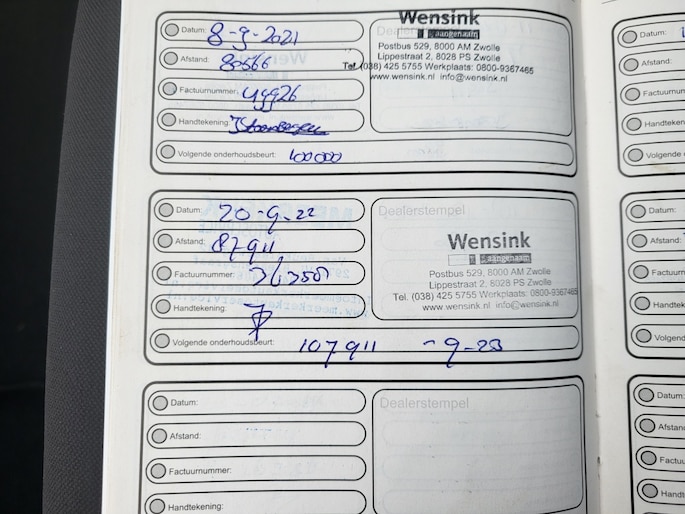 Datum: 8-9-2021
Afstand: 80566
Factuurnummer: 49926
Handtekening:
Volgende onderhoudsbeurt: 100000
Wensink
aangenaam
Postbus 529, 8000 AM Zwolle
Lippestraat 2, 8028 PS Zwolle
Tel. (038) 425 5755 Werkplaats: 0800-9367465
www.wensink.nl info@wensink.nl
Datum: 20-9-22
Afstand: 87911
Factuurnummer:
Handtekening:
Volgende onderhoudsbeurt: 107911 -9-23
Dealerstempel
Wensink
aangenaam
Postbus 529, 8000 AM Zwolle
Lippestraat 2, 8028 PS Zwolle
Tel. (038) 425 5755 Werkplaats: 0800-9367465
www.wensink.nl info@wensink.nl
Datum:
Afstand:
Factuurnummer:
Handtekening:
Dealerstempel
Datum:
Afstand:
Volgende
Datum:
Afstand:
Volgend
Datum: